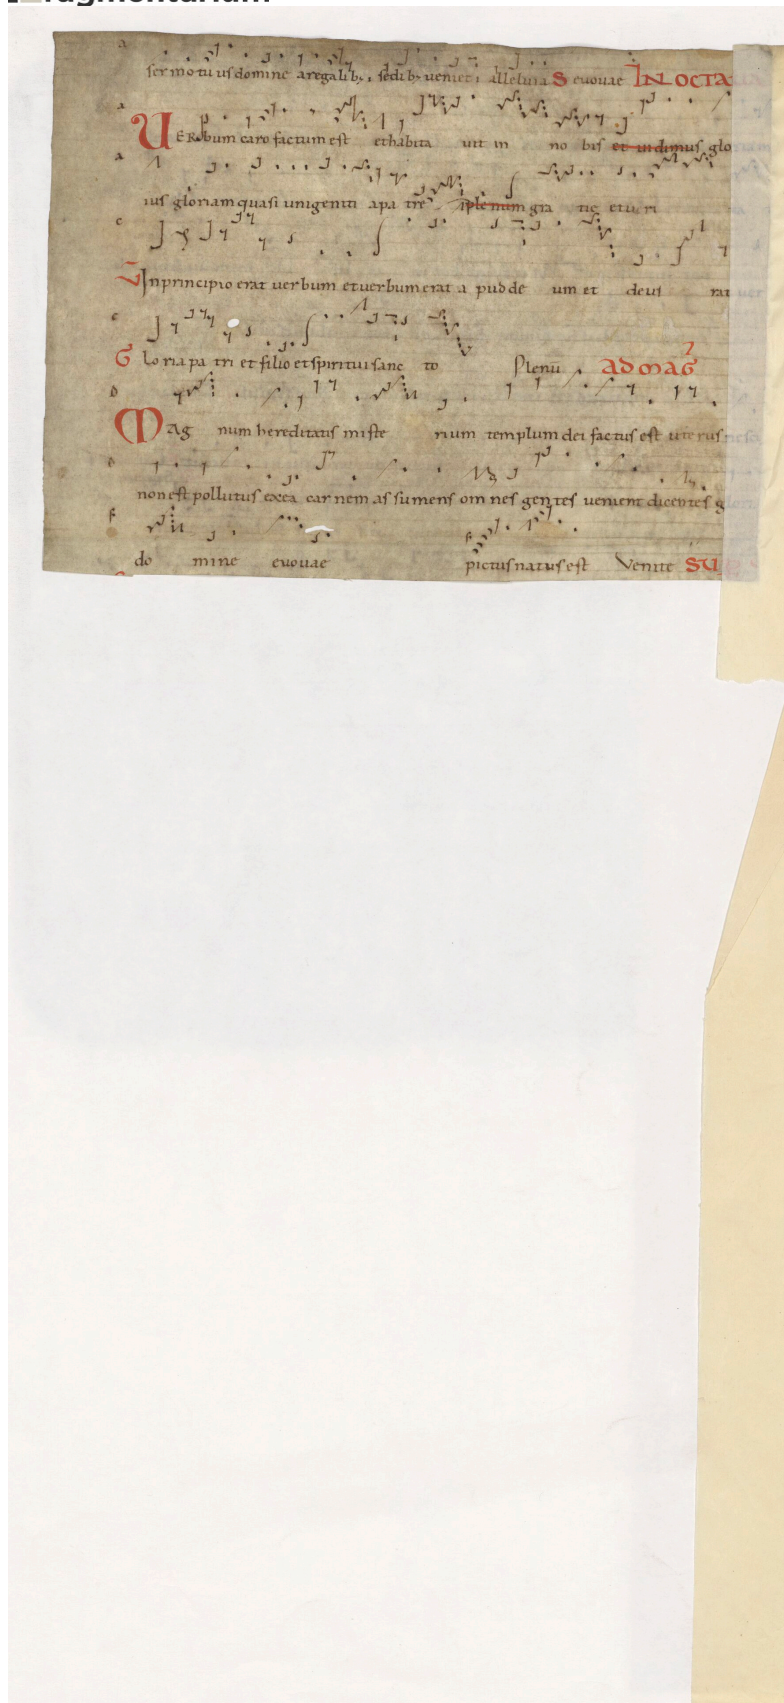 fragmentarium
sermo tuus domine a regalib; sedib; veniet alleluia S evovae IN OCTA
VERbum caro factum est et habita vit in no bis et vidimus glo
ius gloriam quasi unigeniti a pa tre plenum gra tie et veri
In principio erat verbum et verbum erat a pud de um et deus rat
Glo ria pa tri et filio et spiritui sanc to Plenū AD MAG
Mag num hereditatis miste rium templum dei factus est uterus
non est pollutus ex ea car nem as sumens om nes gentes venient dicentes g
do mine evovae pictus natus est Venite SU